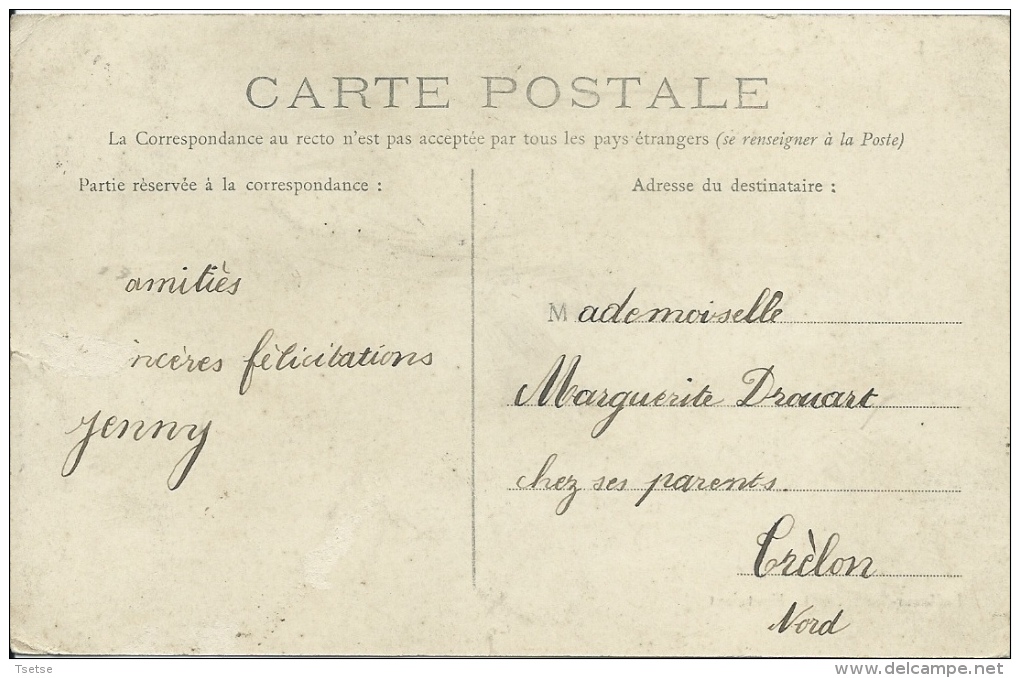 CARTE POSTALE
La Correspondance au recto n'est pas acceptée par tous les pays étrangers (se renseigner à la Poste)
Partie réservée à la correspondance :
amitiès
ncères fèlicitations
Jenny
Adresse du destinataire :
Mademoiselle
Marguerite Drouart
chez ses parents.
Trèlon
Nord
Tsetse
www.delcampe.net